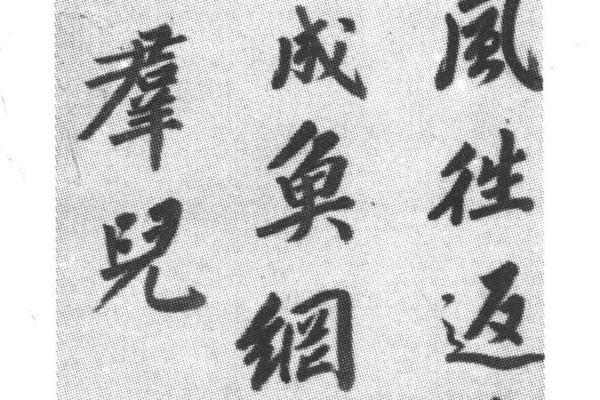 風徃返
成魚網
羣兒